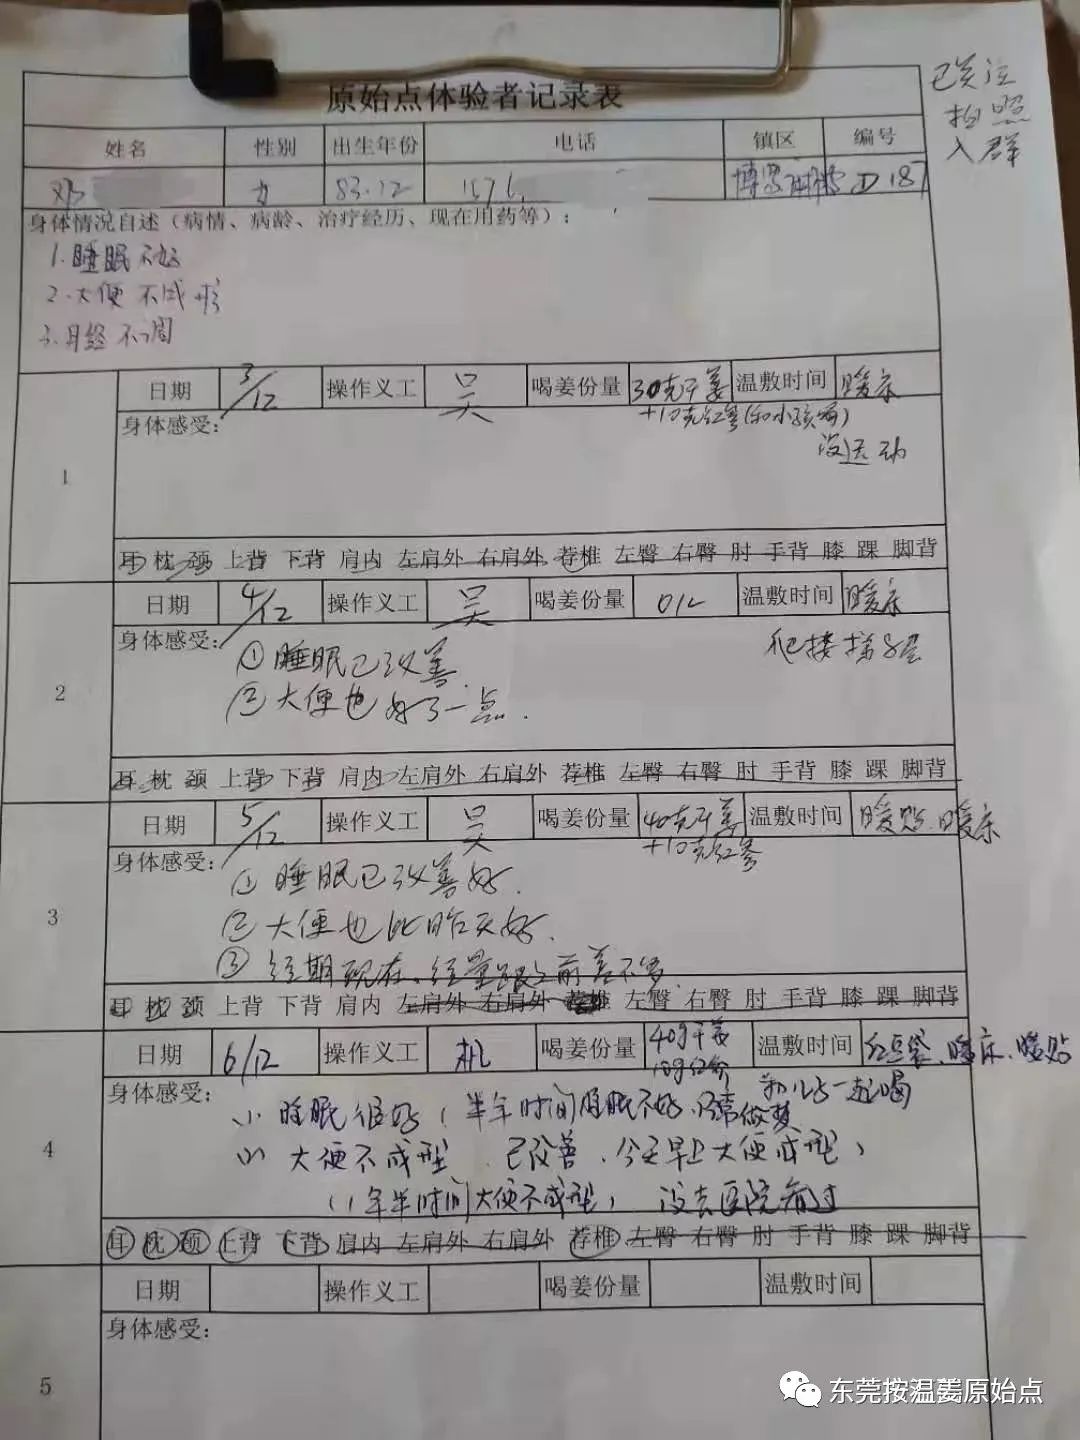 已关注
拍照
入群
原始点体验者记录表
姓名 性别 出生年份 电话 镇区 编号
邓 女 83.12 1576 博罗 D187
身体情况自述（病情、病龄、治疗经历、现在用药等）：
1.睡眠不好
2.大便不成形
3.月经不调
1
日期 3/12 操作义工 吴 喝姜份量 30克干姜 温敷时间 暖床
+10克红参(和小孩喝)
身体感受：
没运动
耳 枕 颈 上背 下背 肩内 左肩外 右肩外 荐椎 左臀 右臀 肘 手背 膝 踝 脚背
2
日期 4/12 操作义工 吴 喝姜份量 温敷时间 暖床
身体感受：
爬楼梯
①睡眠已改善
②大便也好了一点.
耳 枕 颈 上背 下背 肩内 左肩外 右肩外 荐椎 左臀 右臀 肘 手背 膝 踝 脚背
3
日期 5/12 操作义工 吴 喝姜份量 40克干姜 温敷时间 暖贴、暖床
+10克红参
身体感受：
①睡眠已改善好.
②大便也比昨天好.
③经期现在、经量跟之前差不多
耳 枕 颈 上背 下背 肩内 左肩外 右肩外 荐椎 左臀 右臀 肘 手背 膝 踝 脚背
4
日期 6/12 操作义工 机 喝姜份量 40g干姜 温敷时间 红豆袋、暖床、暖贴
10g红参
和儿子一起喝
身体感受：
(1) 睡眠很好（半年时间睡眠不好、经常做梦
(2) 大便不成型、已改善、今天早上大便成型）
（1年半时间大便不成型） 没去医院看过
耳 枕 颈 上背 下背 肩内 左肩外 右肩外 荐椎 左臀 右臀 肘 手背 膝 踝 脚背
5
日期 操作义工 喝姜份量 温敷时间
身体感受：
东莞按温姜原始点